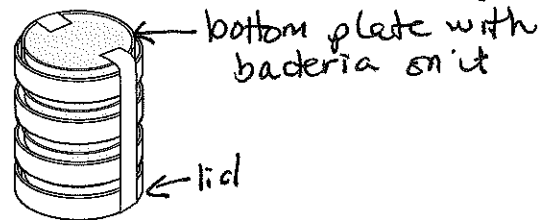 bottom plate with
bacteria on it
lid